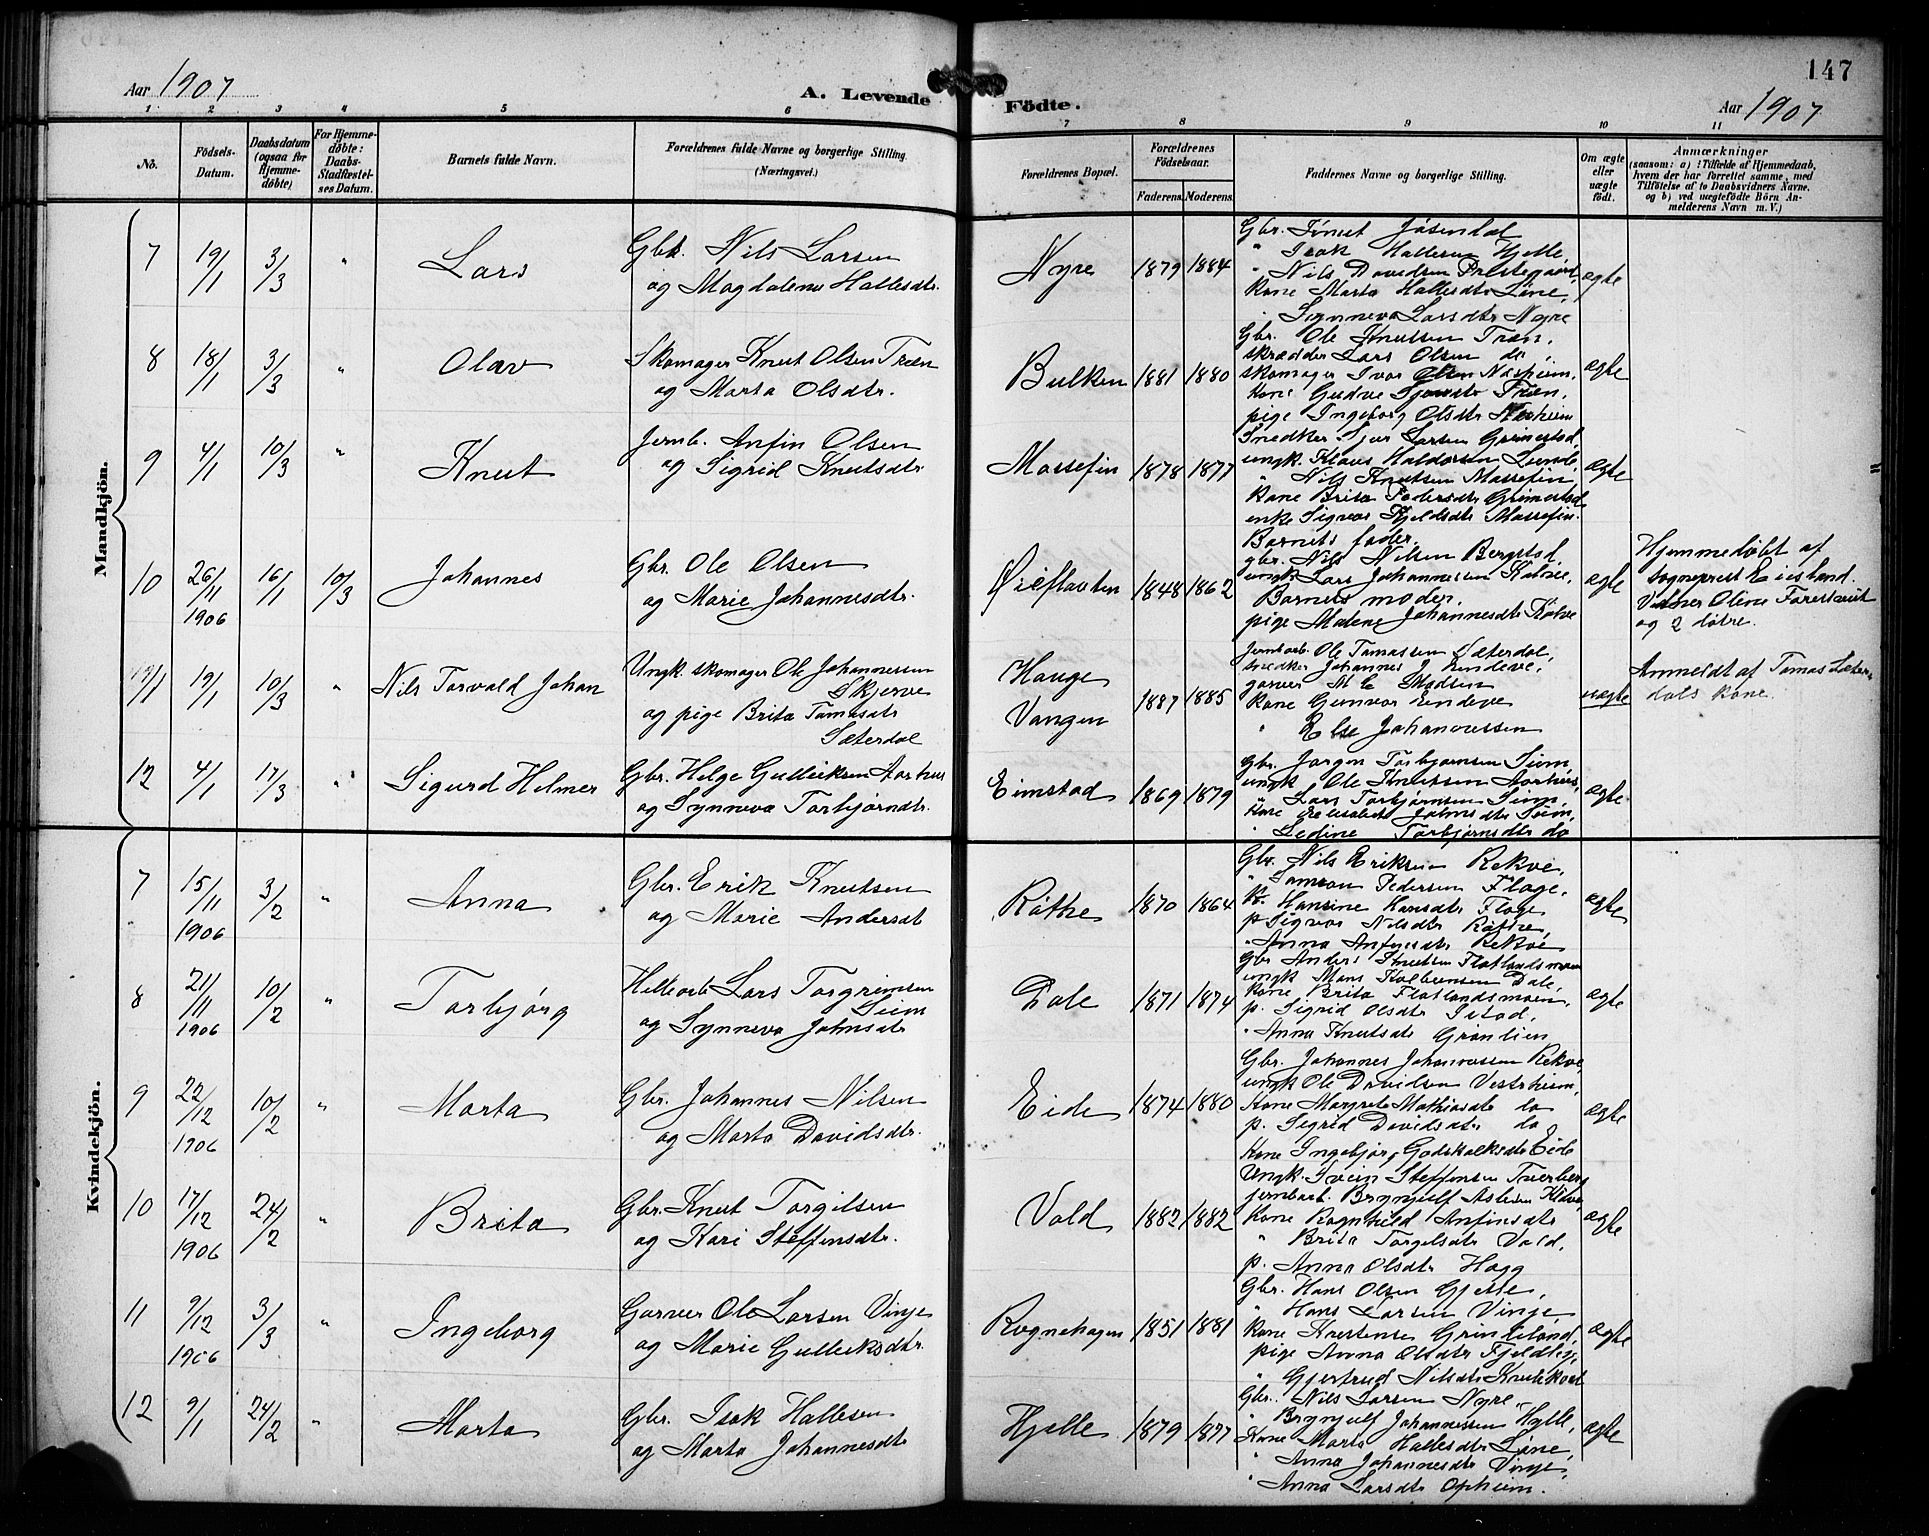 147
Aar 1907
A. Levende Födte.
Aar 1907
1 2 3 4 5 6 7 8 9 10 11
No.
Födsels-Datum.
Daabsdatum (ogsaa for Hjemme-döbte)
For Hjemme-döbte: Daabs-Stadfæstel-ses Datum.
Barnets fulde Navn.
Forældrenes fulde Navne og borgerlige Stilling. (Næringsvei.)
Forældrenes Bopæl.
Forældrenes Födselsaar.
Faderens. Moderens.
Faddernes Navne og borgerlige Stilling.
Om ægte eller uægte födt.
Anmærkninger
(saasom: a) i Tilfælde af Hjemmedaab,
hvem der har forrettet samme, med
Tilföielse af to Daabsvidners Navne.
og b) ved uægtefödte Börn An-
melderens Navn m. V.)
Mandkjön.
7 19/1 3/3 " Lars
Gbr. Nils Larsen
og Magdalena Hallesdtr.
Nyre 1879 1884
Gbr. Knut Jösendal
" Isak Hallesen Hjelle,
" Nils Davidsen Prestegaard,
Kone Marta Hallesdtr Löne,
" Synneva Larsdtr Nyre
ægte
8 18/1 3/3 " Olav
Skomager Knut Olsen Træn
og Marta Olsdtr.
Bulken 1881 1880
Gbr. Ole Knutsen Træn,
skrædder Lars Olsen do,
skomager Ivar Olsen Nasheim,
Kone Gudve Sjursdtr Træn,
pige Ingeborg Olsdtr
ægte
9 4/1 10/3 " Knut
Jernb. Anfin Olsen
og Sigrid Knutsdtr
Massefin 1878 1877
Snedker Sjur Larsen Grimestad,
ungk. Klaus Haldorsen Lunde,
" Nils Knutsen Massefin
Kone Brita Pedersdtr Grimestad
enke Sigvor Kjeldsdtr Massefin.
ægte
10 26/11 1906 16/1 10/3 Johannes
Gbr. Ole Olsen
og Marie Johannesdtr.
1848 1862
Barnets fader,
gbr. Nils Nilsen Bergstad,
ungk Lars Johannessen Kalve,
Barnets moder,
pige Malene Johannesdtr Kalve
ægte
Hjemmedöbt af
sogneprest Eiesland.
Vidner Oline
og 2 dötre.
11 19/1 10/3 " Nils Torvald Johan
Ungk. skomager Ole Johannessen
Skjerve
og pige Brita Tomasdtr
Sæterdal
Hauge
Vangen
1887 1885
Jernbarb. Ole Tomassen Sæterdal,
snedker Johannes J Lindeve,
garver M E Madsen
Kone Gunvor Lindeve
" Else Johannessen
uægte
Anmeldt af Tomas Sæter-
dals kone.
12 4/1 17/3 " Sigurd Helmer
Gbr. Helge Gulleiksen Aarhus
og Synneva Torbjörnsdtr.
Eimstad 1869 1879
Gbr. Jörgen Torbjörnsen Seim,
ungk Ole Knutsen Aarhus,
" Lars Torbjörnsen Seim,
Kone Elisabet Johnsdtr Seim,
" Ledine Torbjörnsdtr do
ægte
Kvindekjön.
7 15/11 1906 3/2 " Anna
Gbr. Erik Knutsen
og Marie Andersdt
Röthe 1870 1864
Gbr. Nils Eriksen Rekve,
" Samson Pedersen Flage,
K. Hansine Hansdtr Flage
p. Sigvor Nilsdtr Röthe,
" Anna Anfinsdtr Rekve
ægte
8 21/11 1906 10/2 " Torbjörg
Lars Torgrimsen
Seim
og Synneva Johnsdtr
Dale 1871 1874
Gbr Anders Knutsen Flatlandsmoen
ungk Mons Kolbeinsen Dale,
Kone Brita Flatlandsmoen,
p. Sigrid Olsdtr Istad,
" Anna Knutsdtr Grönlien
ægte
9 22/12 1906 10/2 " Marta
Gbr. Johannes Nilsen
og Marta Davidsdtr.
Eide 1874 1880
Gbr. Johannes Johannessen Rekve,
ungk Ole Davidsen Vestrheim,
Kone Margreta Mathiasdtr do
p. Sigrid Davidsdtr do
Kone Ingebjörg Godskalksdtr Eide
ægte
10 17/12 1906 24/2 " Brita
Gbr. Knut Torgilsen
og Kari Steffensdtr.
Vold 1882 1882
Ungk. Svein Steffensen Tverberg
jernbarb. Brynjulf
Kone Ragnhild Anfinsdtr
" Brita Torgelsdtr Vold,
p. Anna Olsdtr Hagg
ægte
11 9/12 1906 3/3 " Ingeborg
Garver Ole Larsen Vinje
og Marie Gulleiksdtr.
Rognehagen 1851 1881
Gbr. Hans Olsen Gjelle,
" Hans Larsen Vinje,
Kone Kirstense Grindeland,
pige Anna Olsdtr
" Gjertrud Nilsdtr
ægte
12 9/1 24/2 " Marta
Gbr. Isak Hallesen
og Marta Johannesdtr
Hjelle 1879 1877
Gbr. Nils Larsen Nyre
" Brynjulf Johannessen Hjelle,
Kone Marta Hallesdtr Löne,
" Anna Johannesdtr Vinje,
" Anna Larsdtr Opheim.
ægte